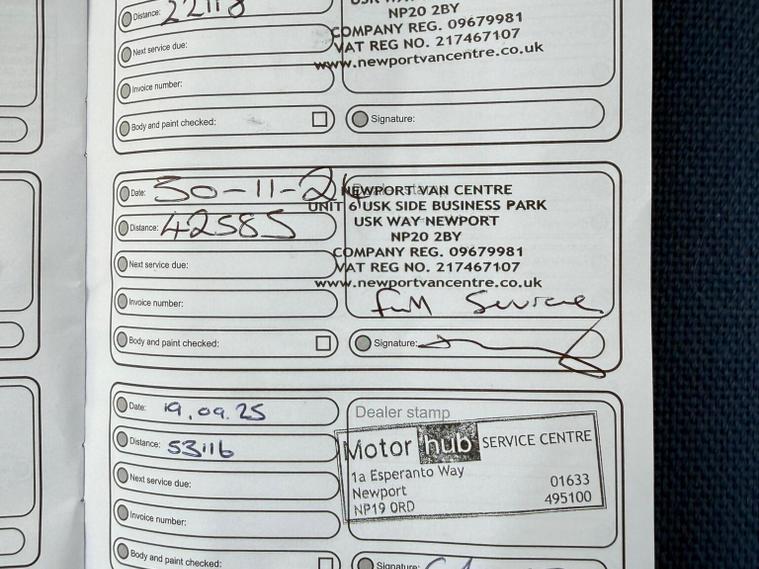 Distance: 22118
NP20 2BY
COMPANY REG. 09679981
VAT REG NO. 217467107
www.newportvancentre.co.uk
Next service due:
Invoice number:
Body and paint checked:
Signature:
Date: 30-11-24
Distance: 42585
Next service due:
Invoice number:
Body and paint checked:
NEWPORT VAN CENTRE
UNIT 6 USK SIDE BUSINESS PARK
USK WAY NEWPORT
NP20 2BY
COMPANY REG. 09679981
VAT REG NO. 217467107
www.newportvancentre.co.uk
full Service
Signature:
Date: 19.09.25
Distance: 53116
Next service due:
Invoice number:
Body and paint checked:
Dealer stamp
Motor hub SERVICE CENTRE
1a Esperanto Way
Newport
NP19 0RD
01633
495100
Signature: